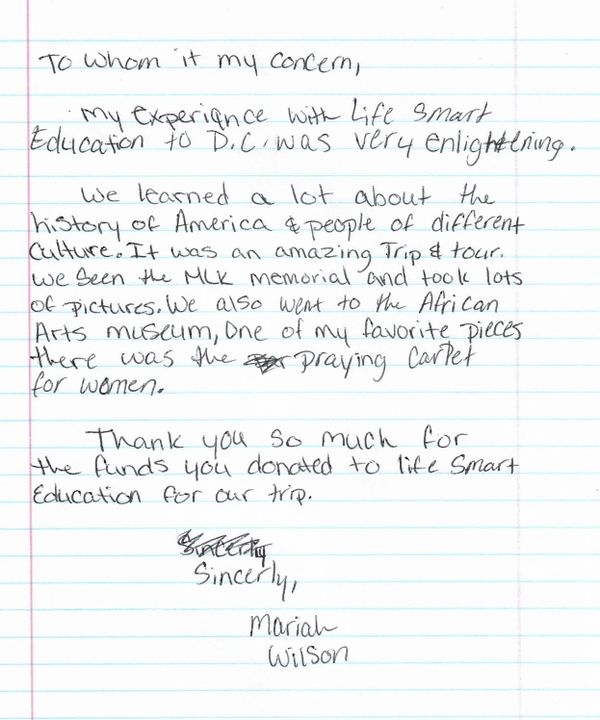 To whom it my concern,
My experiance with Life Smart
Education to D.C. was very enlightening.
We learned a lot about the
history of America & people of different
Culture. It was an amazing Trip & tour.
we seen the MLK memorial and took lots
of pictures. We also went to the African
Arts museum, One of my favorite pieces
there was the praying carpet
for women.
Thank you so much for
the funds you donated to life Smart
Education for our trip.
Sincerly,
Mariah
Wilson